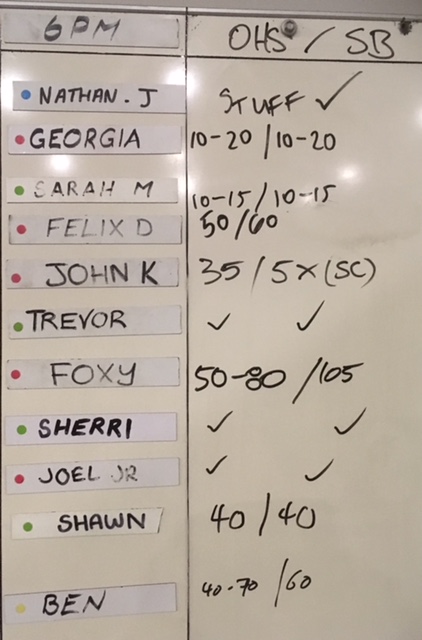 6PM OHS / SB
NATHAN. J STUFF ✓
GEORGIA 10-20 / 10-20
SARAH M 10-15 / 10-15
FELIX D 50/60
JOHN K 35 / 5X (SC)
TREVOR ✓ ✓
FOXY 50-80 / 105
SHERRI ✓ ✓
JOEL JR ✓ ✓
SHAWN 40 / 40
BEN 40-70 / 60